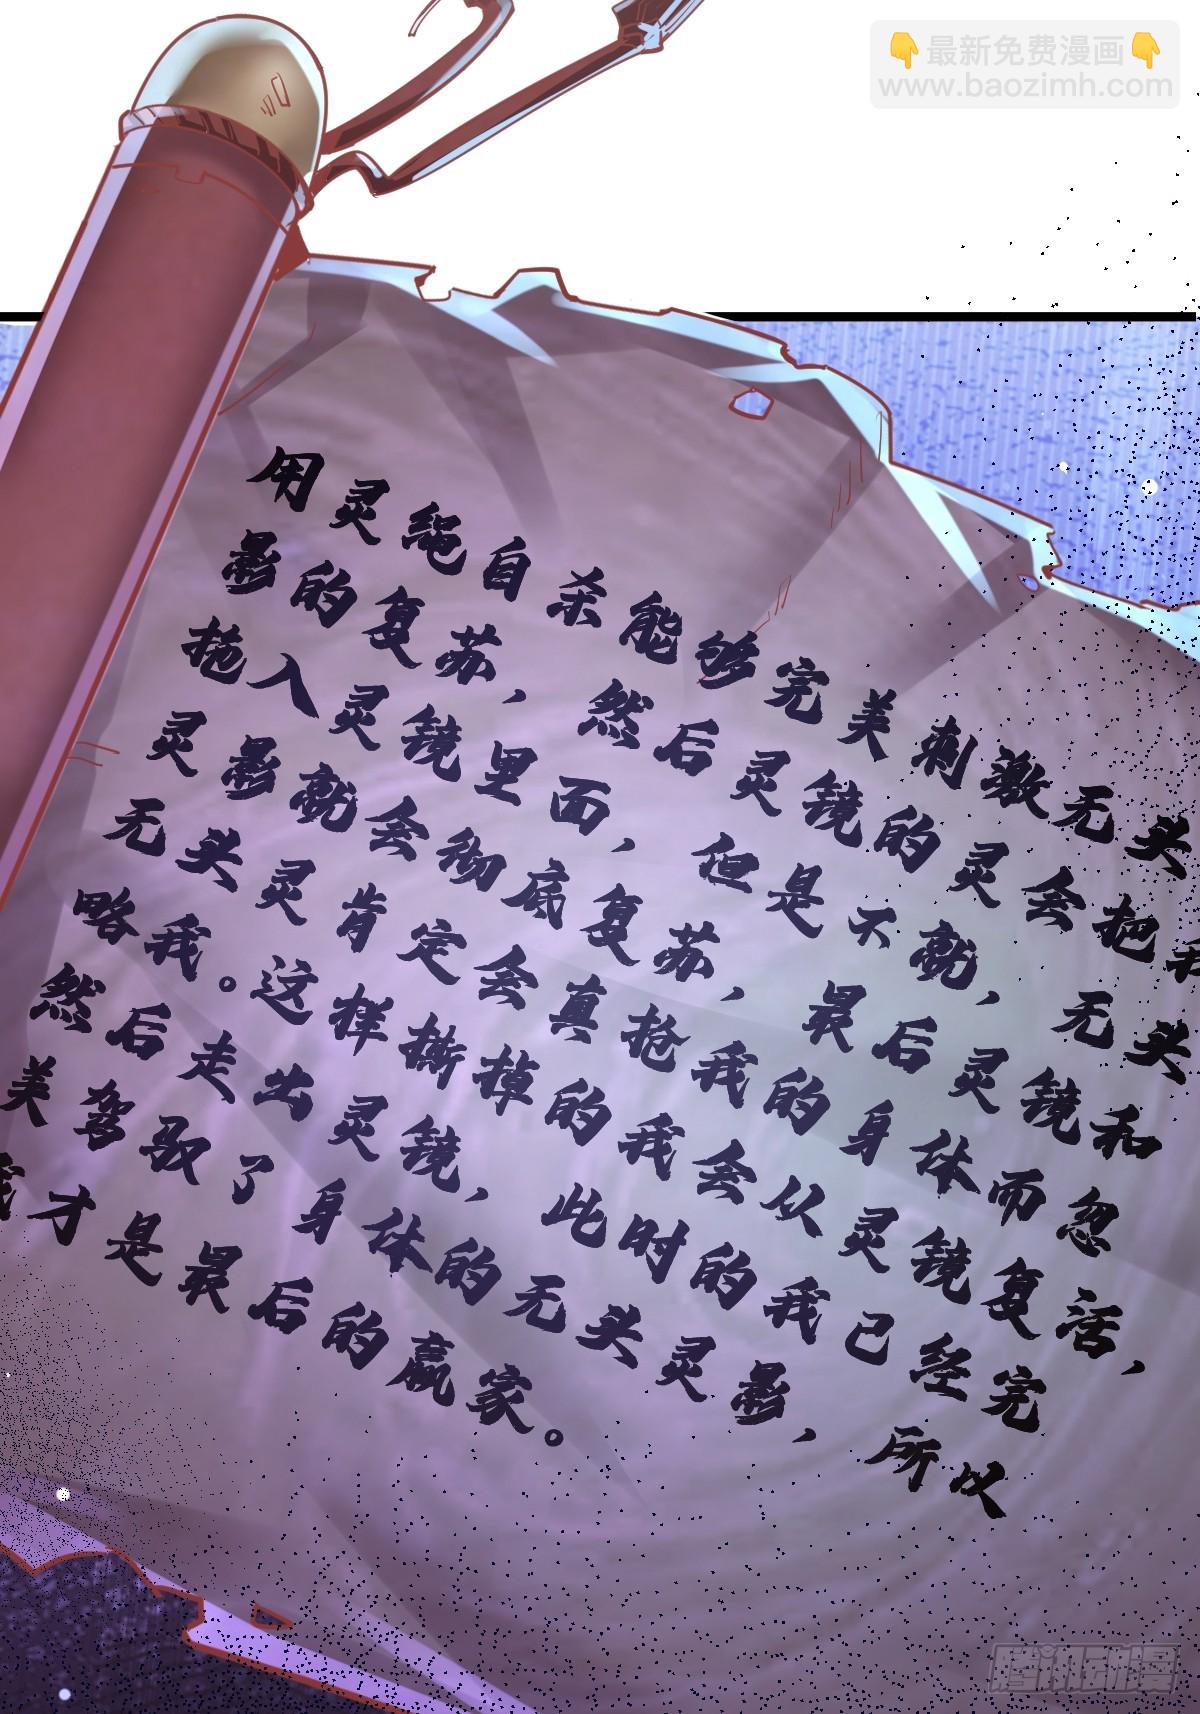 最新免费漫画
www.baozimh.com
用灵绳自杀能够完美刺激无头
影的复苏，然后灵镜的灵会把我
拖入灵镜里面，但是不就，无头
灵影就会彻底复苏，最后灵镜和
无头灵肯定会真抢我的身体而忽
略我。这样撕掉的我会从灵镜复活，
然后走出灵镜，此时的我已经完
美驾驭了身体的无头灵影，所以
我才是最后的赢家。
腾讯动漫